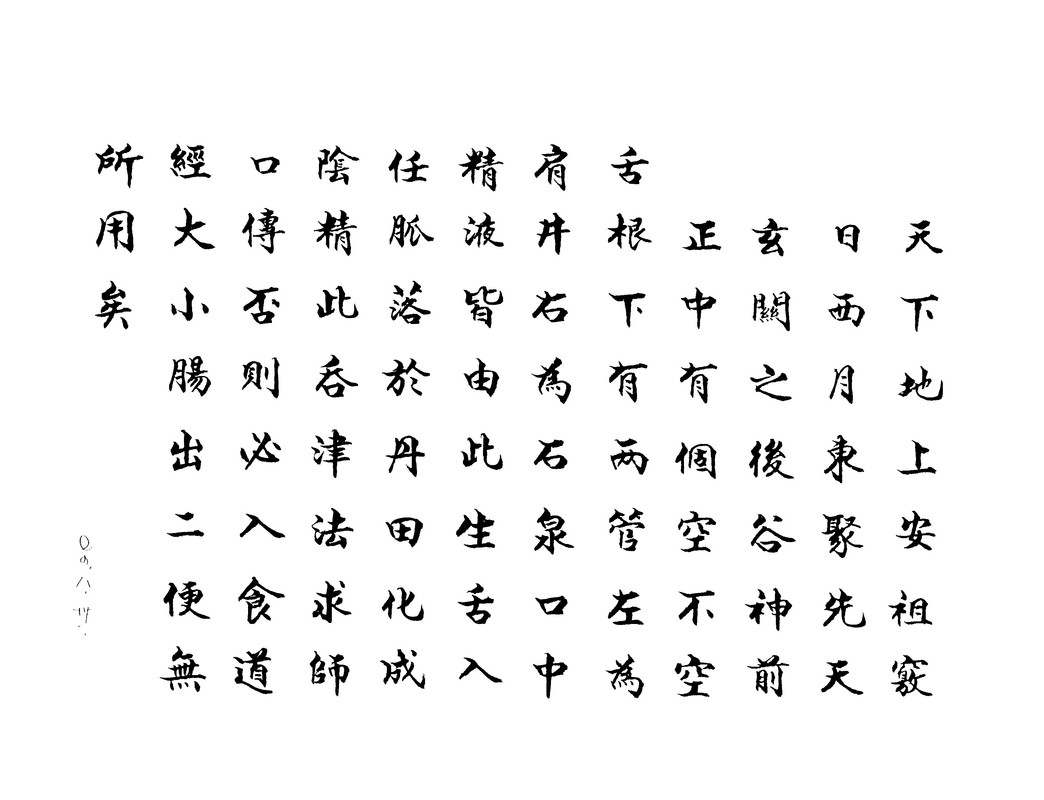 天下地上安祖竅
日西月東聚先天
玄關之後谷神前
正中有個空不空
舌根下有两管左為
肩井右為石泉口中
精液皆由此生舌入
任脈落於丹田化成
陰精此吞津法求師
口傳否則必入食道
經大小腸出二便無
所用矣